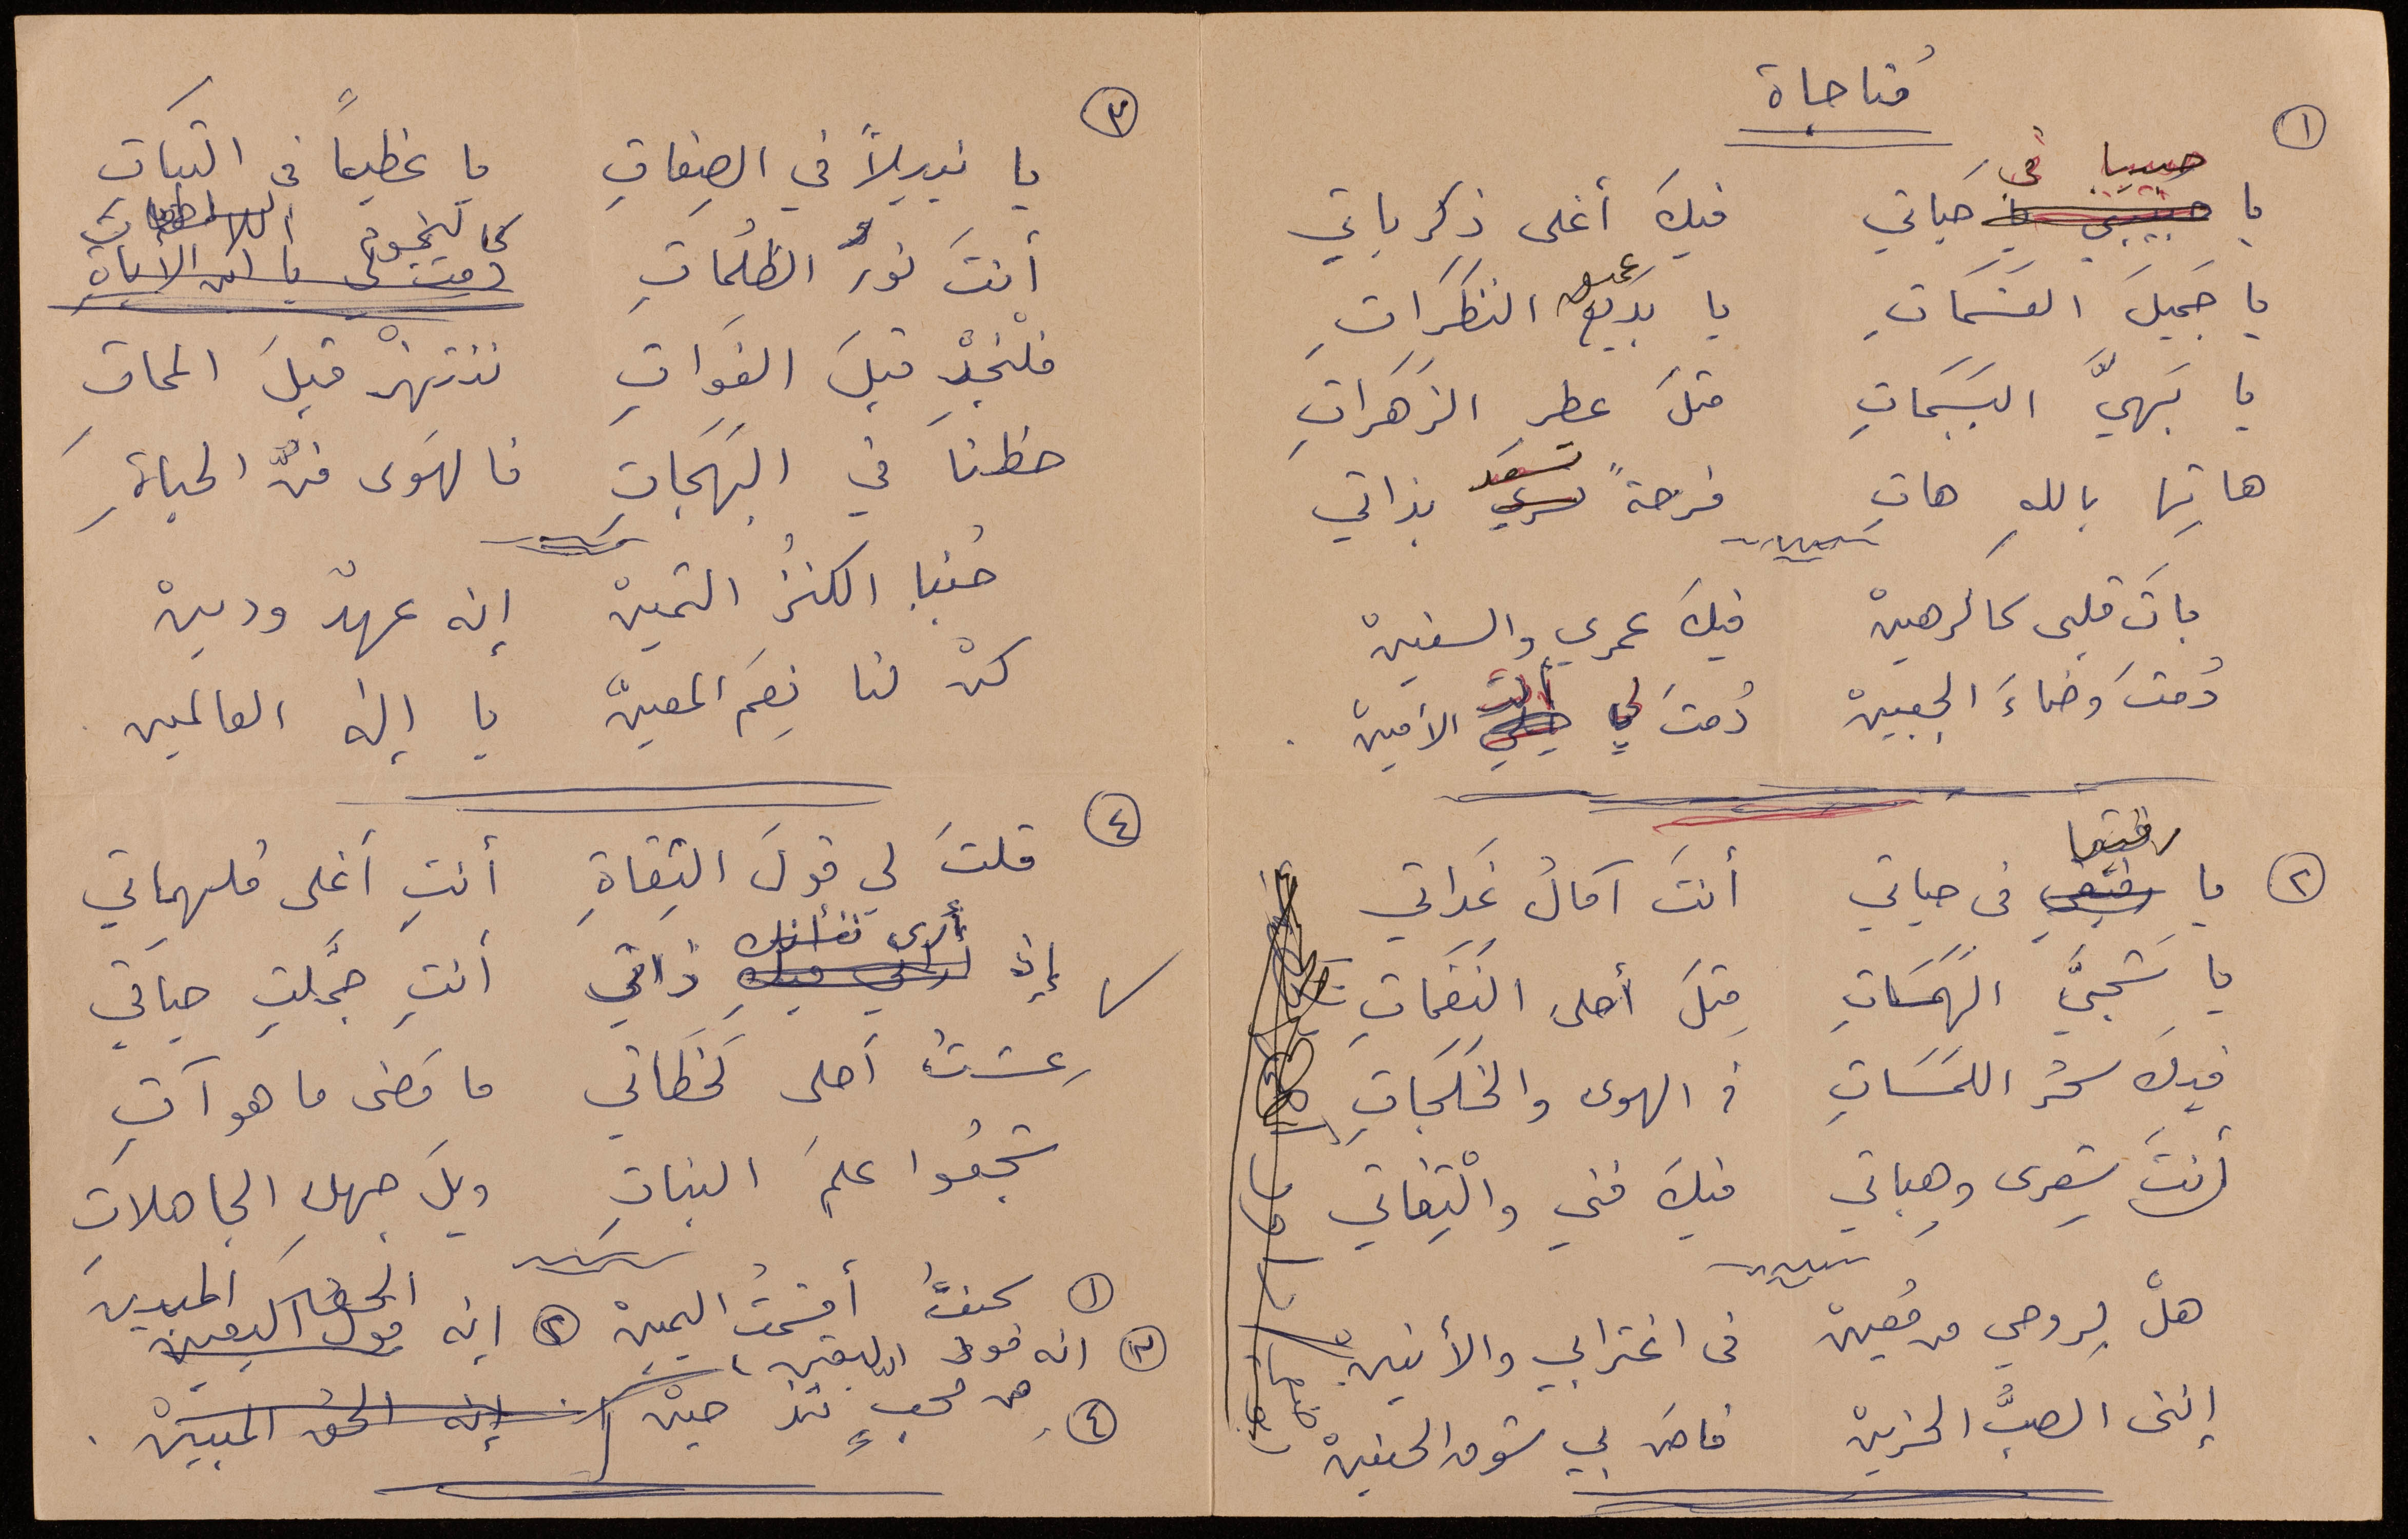 مُناجاة
١
يا حبيبا في حَياتي فيكَ أغلى ذِكرياتي
يا جَميلَ القسَمَاتِ يا عميق النظَرَاتِ
يا بَهيَّ البَسَمَاتِ مثلَ عطرِ الزَهَرَاتِ
هاتِها باللهِ هاتِ فرحةً تسعَد بذاتي
باتَ قلبى كالرهينْ فيكَ عمري والسنينْ
دُمتَ وضاءَ الجبينْ دُمتَ لي أنت الأمينْ .
٢
يا رفيقا فى حياتي أنتَ آمالُ غَداتي
يا شَجيَّ الهَمَسَاتِ مِثلَ أحلى النَغَمَاتِ
فيكَ سحْرُ اللمَسَاتِ فى الهوى والخَلَجَاتِ
أنتَ شِعرى وهِباتي فيكَ فني والْتِفاتي
هلْ لِروحي من مُعينْ فى اغترابي والأنينْ
إننى الصبُّ الحزينْ فاضَ بي شوقُ الحنينْ
٣
يا نبيلاً في الصِفاتِ يا عظيماً فى الثبَاتِ
أنتَ نورُ الظلُمَاتِ كالنجوم
دمت لى يا ابن الأباةِ
فلْنَجِدْ قبلَ الفَوَاتِ ننتهزْ قبلَ المماتِ
حظنَا في البَهَجَاتِ فالهَوَى فنُّ الحياةِ
حُبنا الكنزُ الثمينْ إنه عهدٌ ودينْ
كنْ لنا نِعمَ المعينْ يا إلهَ العالمين .
٤
قلتَ لي قولَ الثِقاةِ أنتِ أغلى مُلهِماتي
إذ أرى ذاتي أنتِ جمَّلتِ حياتي
عِشتُ أحلى لَحَظاتي ما مَضى ما هو آتِ
شجِّعُوا علمَ البناتِ ويلَ جهلِ الجاهلاتِ
١ أقسَمتُ اليمينْ ٢ إنه الحق المبين
قول اليقين
٣ انه قول اليقين
٤ من محبٍ منذ حينْ إنه الحق المبينْ .